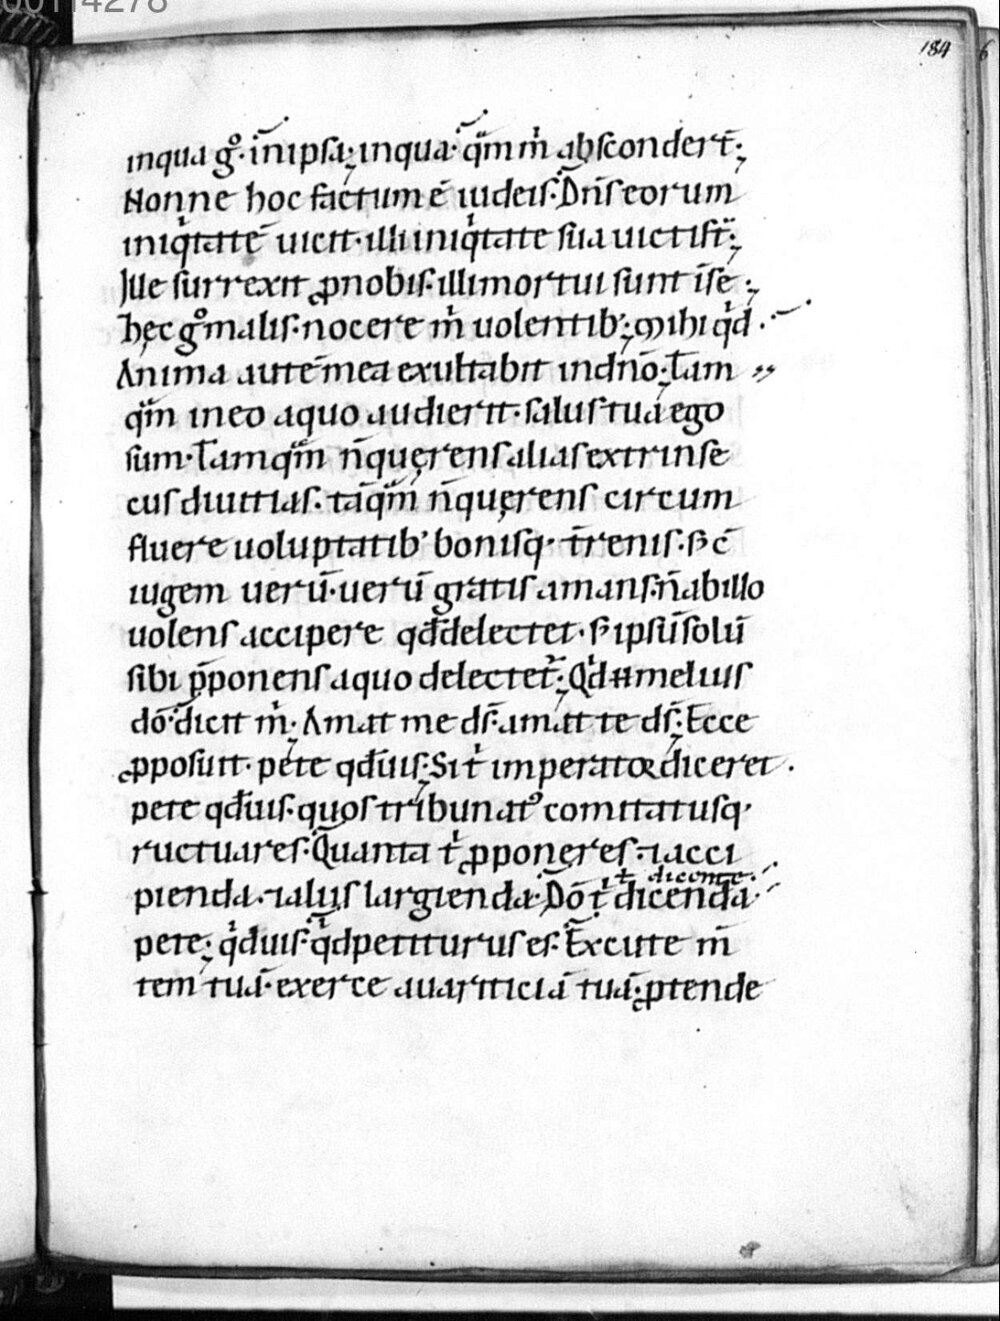 00114278
184 6
inqua gͦ· in ipsa; inqua· qͣm m̍ absconder̄t;
Nonne hoc factum ē iudeis· Dn̄s eorum
iniq̍tatē uicit· illi iniq̍tate sua uicti st̄;
Ille surrexit ꝓ nobis· illi mortui sunt i se;
hęc gͦ malis· nocere m̍ uolentib'; Mihi q̍d·
Anima autē mea exultabit in dn̄o; Tam
qͣm in eo a quo audierit· salus tua ego
sum· Tam qͣm n̄ quęrens alias extrinse
cus diuitias· tāqͣm n̄ quęrens circum
fluere uoluptatib' bonisq· t̄renis· sꝫ c̄
iugem uerū· uerū gratis amans· n̄ ab illo
uolens accipere qđ delectet· sꝫ ipsū solū
sibi p̄ponens a quo delectet̄; Q̍d melius
dō· dicit m̍; Amat me ds̄· amat te ds̄; Ecce
ꝓposuit· pete qđ uis; Si t̍ imperator diceret·
pete qđ uis· quos tribunatꝰ comitatusq·
ructuares· Quanta t̍ ꝓponeres· ⁊ acci
t̍ dicente·
pienda· ⁊ aliis largienda· Dō t̍ dicenda·
pete; q̍d uis· q̍d petiturus es· Excute m̄
tem tuā· exerce auariticiā tuā· ꝓtende